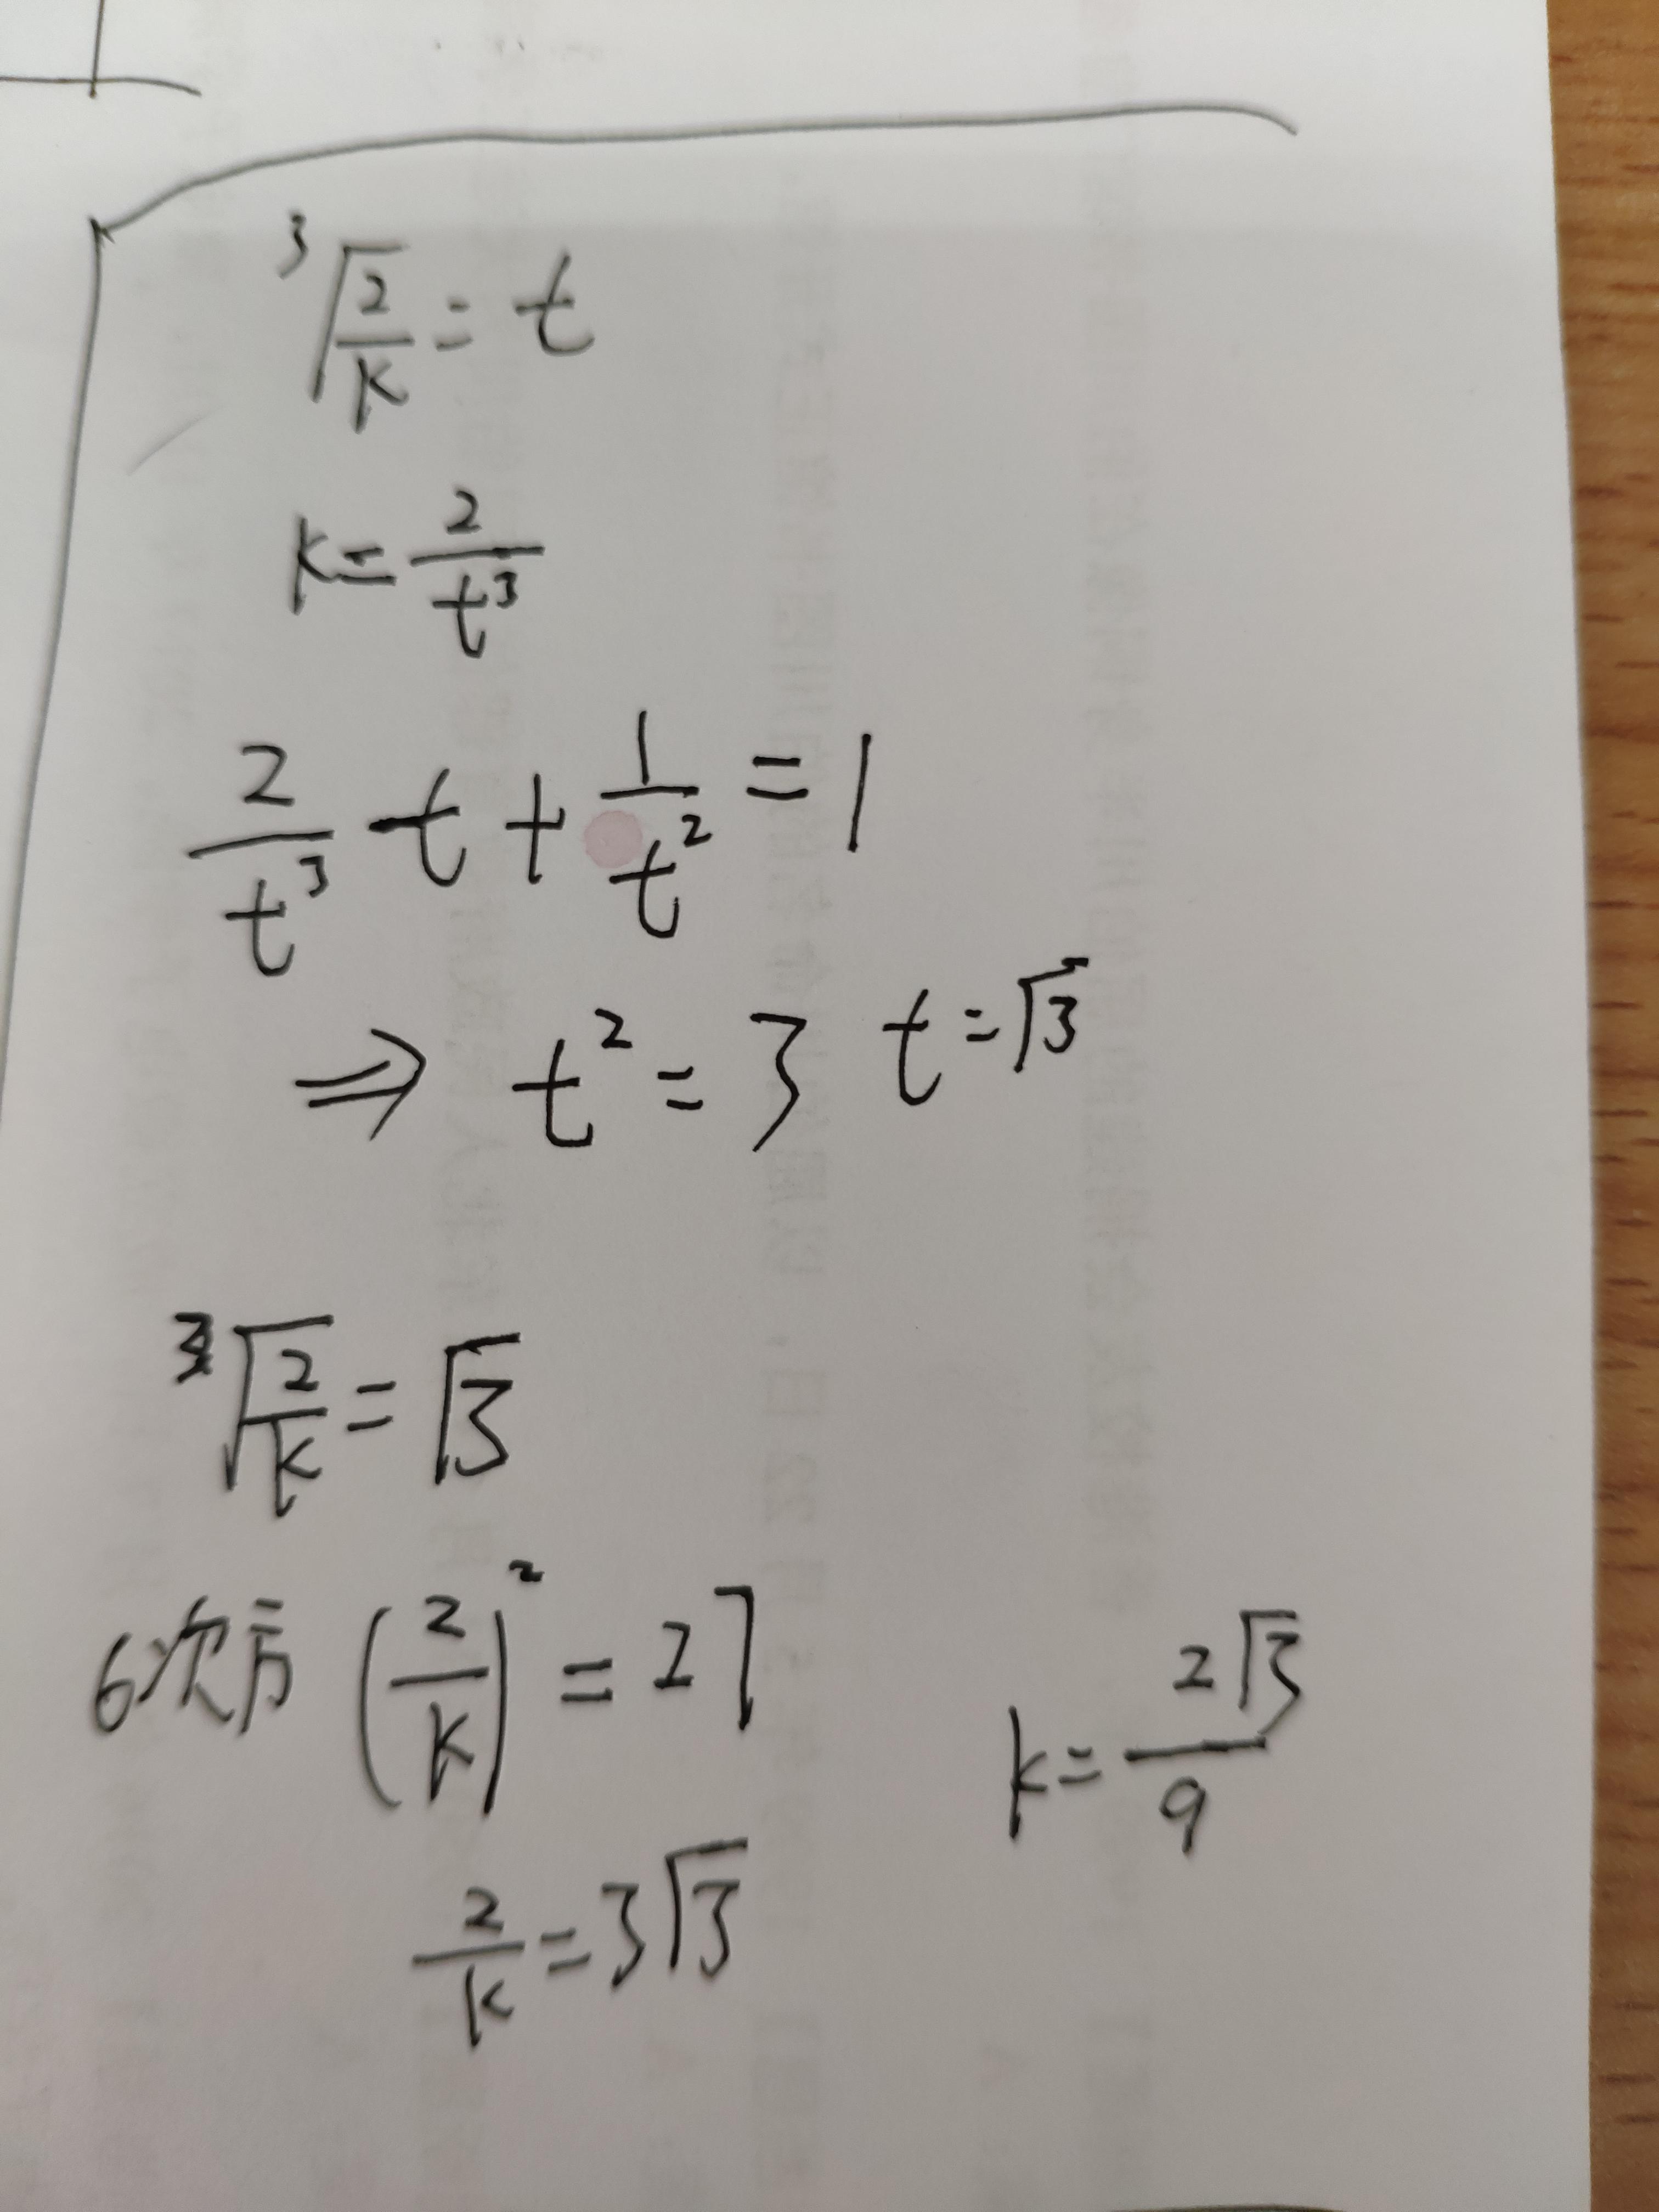 ∛(2/k) = t
k = 2/t³
2/t³ t + 1/t² = 1
⇒ t² = 3 t = √3
∛(2/k) = √3
6次方 (2/k)² = 27
k = 2√3/9
2/k = 3√3